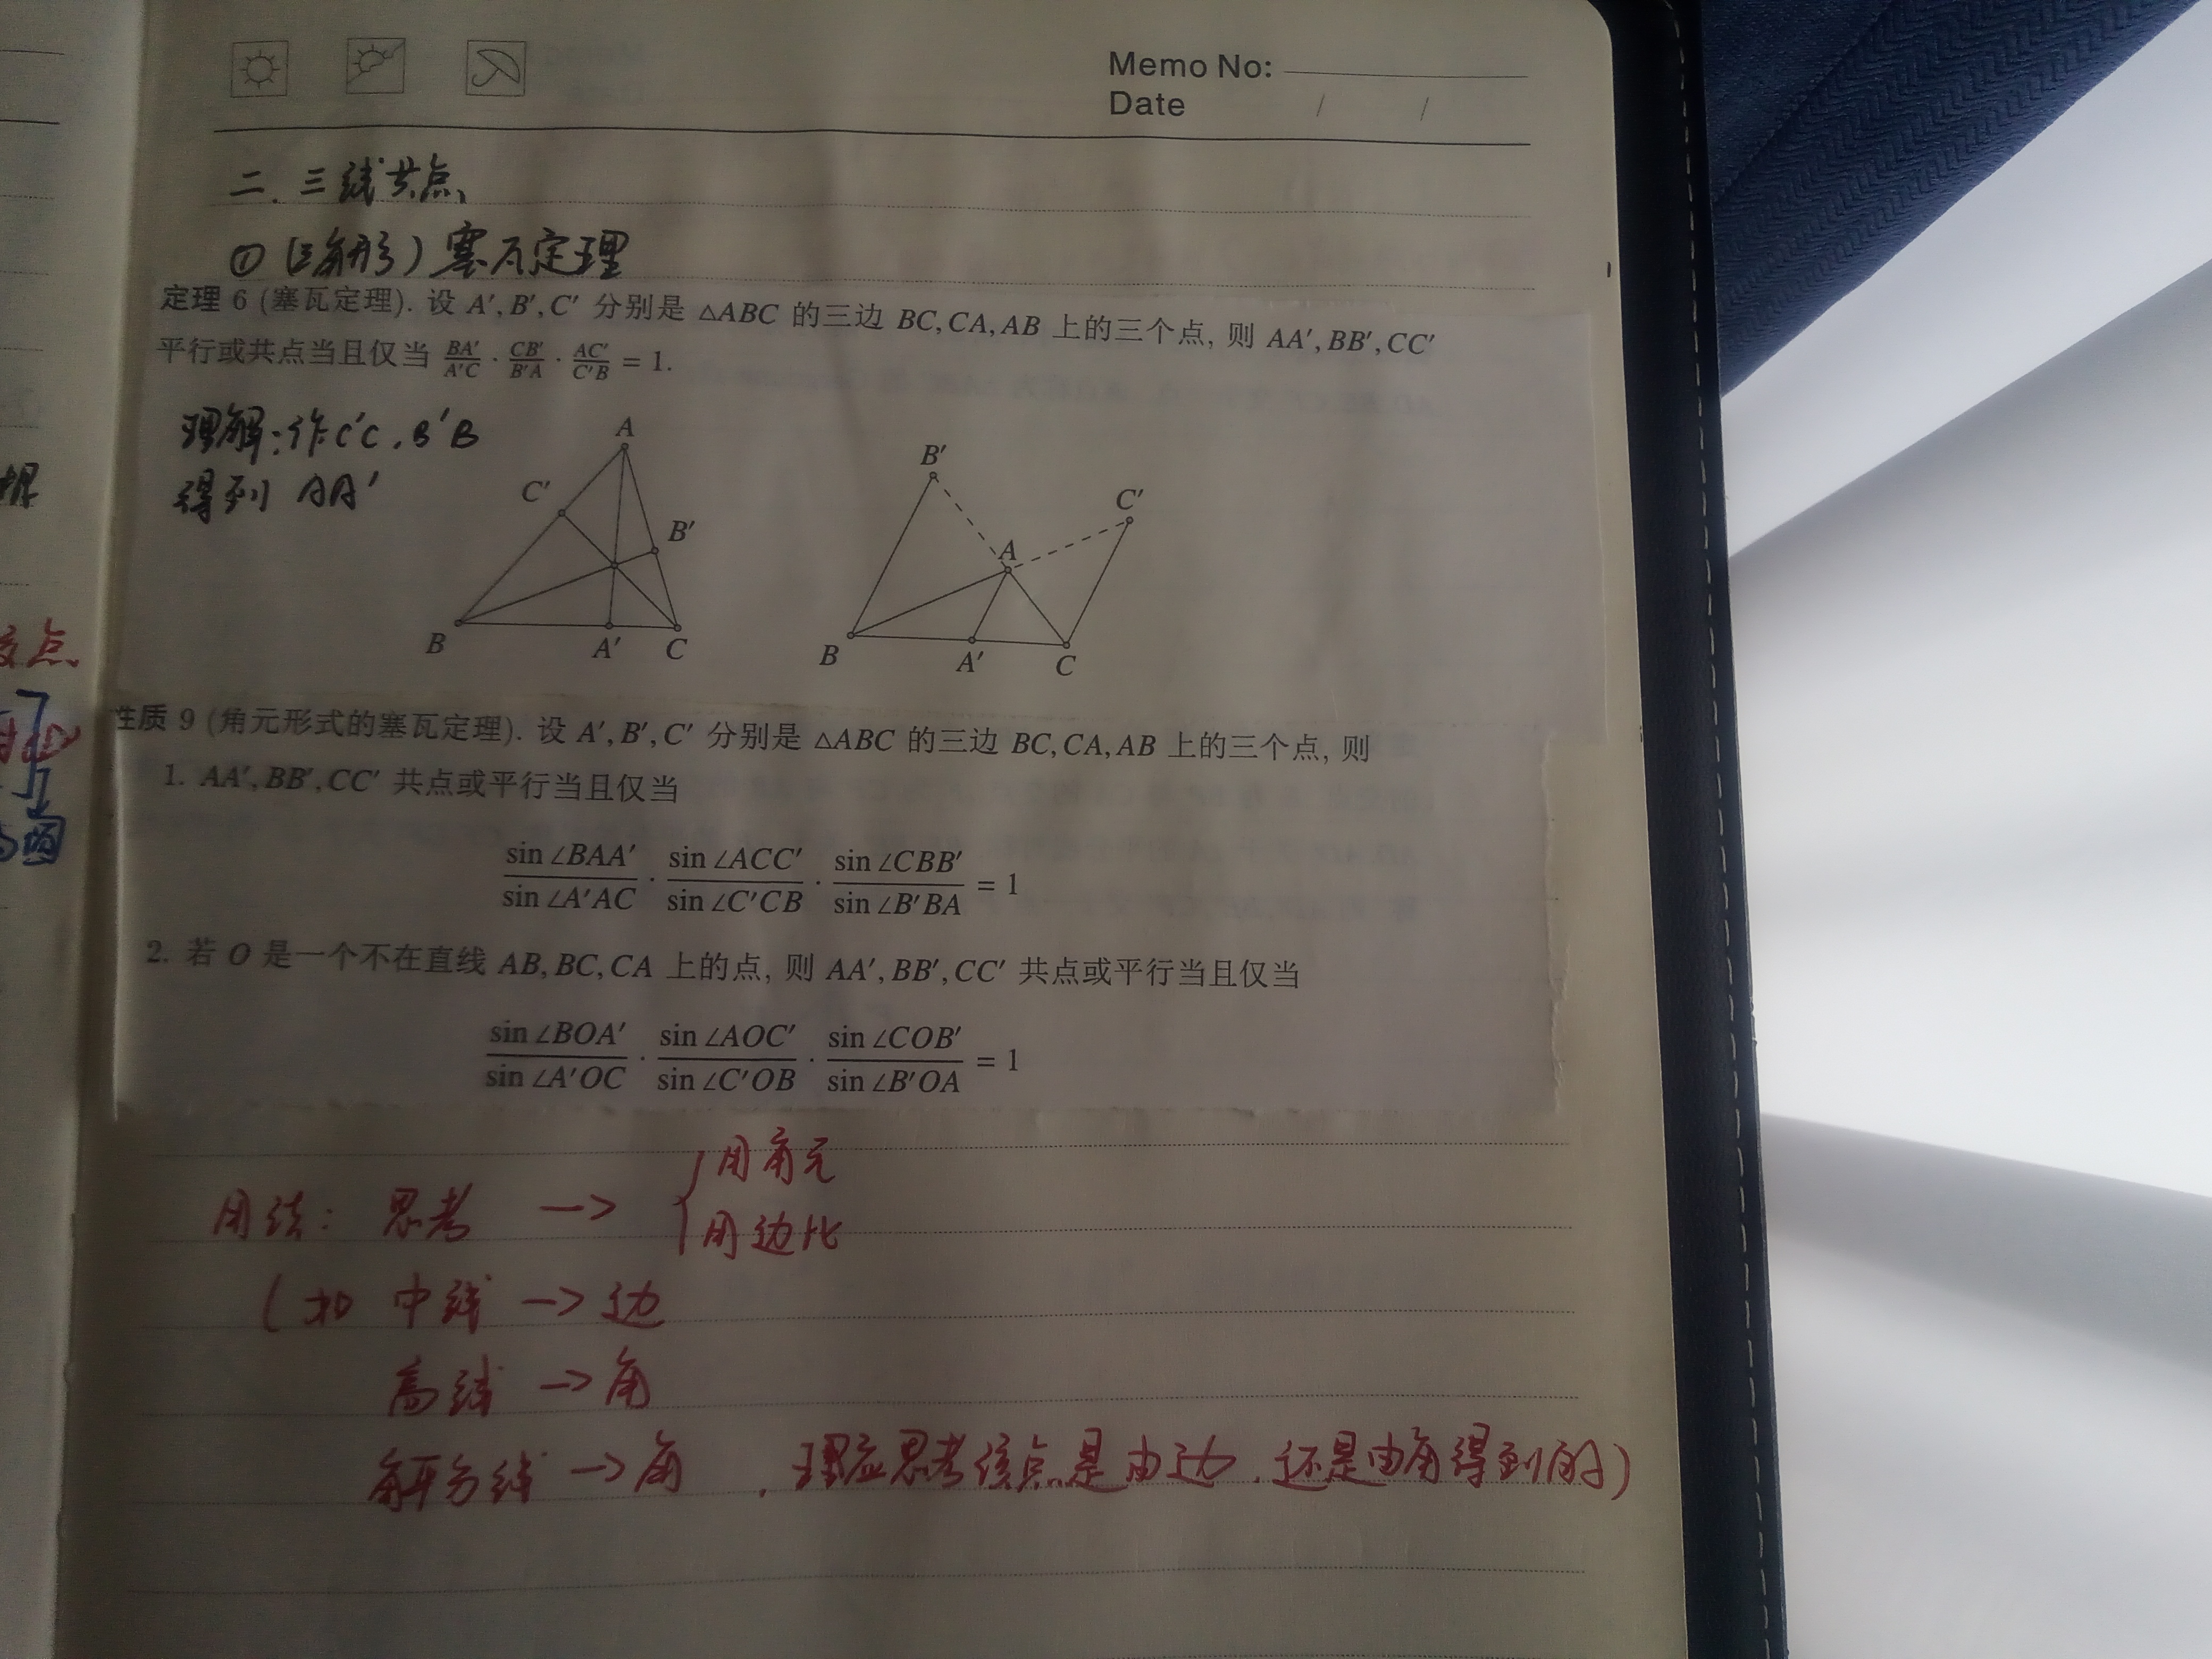 Memo No:
Date / /
二. 三线共点
① (三角形) 塞瓦定理
定理 6 (塞瓦定理). 设 A′, B′, C′ 分别是 △ABC 的三边 BC, CA, AB 上的三个点, 则 AA′, BB′, CC′
平行或共点当且仅当 BA′/A′C · CB′/B′A · AC′/C′B = 1.
理解: 作 C′C, B′B
得到 AA′
A
C′
B′
B
A′
C
B′
C′
A
B
A′
C
性质 9 (角元形式的塞瓦定理). 设 A′, B′, C′ 分别是 △ABC 的三边 BC, CA, AB 上的三个点, 则
1. AA′, BB′, CC′ 共点或平行当且仅当
sin ∠BAA′/sin ∠A′AC · sin ∠ACC′/sin ∠C′CB · sin ∠CBB′/sin ∠B′BA = 1
2. 若 O 是一个不在直线 AB, BC, CA 上的点, 则 AA′, BB′, CC′ 共点或平行当且仅当
sin ∠BOA′/sin ∠A′OC · sin ∠AOC′/sin ∠C′OB · sin ∠COB′/sin ∠B′OA = 1
用法: 思考 → { 用角元
用边比
(如 中线 → 边
高线 → 角
角平分线 → 角 , 理应思考该点是由边, 还是由角得到的)
点
圆